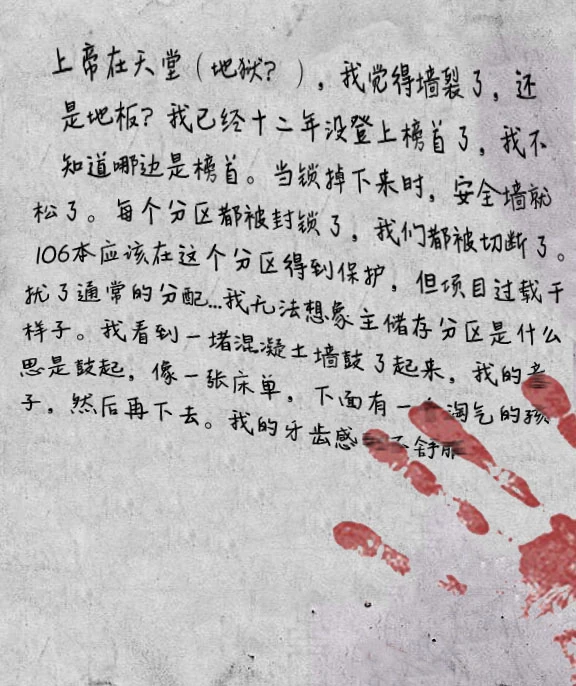 上帝在天堂（地狱？），我觉得墙裂了，还
是地板？我已经十二年没登上榜首了，我不
知道哪边是榜首。当锁掉下来时，安全墙就
松了。每个分区都被封锁了，我们都被切断了。
106本应该在这个分区得到保护，但项目过载干
扰了通常的分配...我无法想象主储存分区是什么
样子。我看到一堵混凝土墙鼓了起来，我的意
思是鼓起，像一张床单，下面有一个淘气的孩
子，然后再下去。我的牙齿感 不舒服